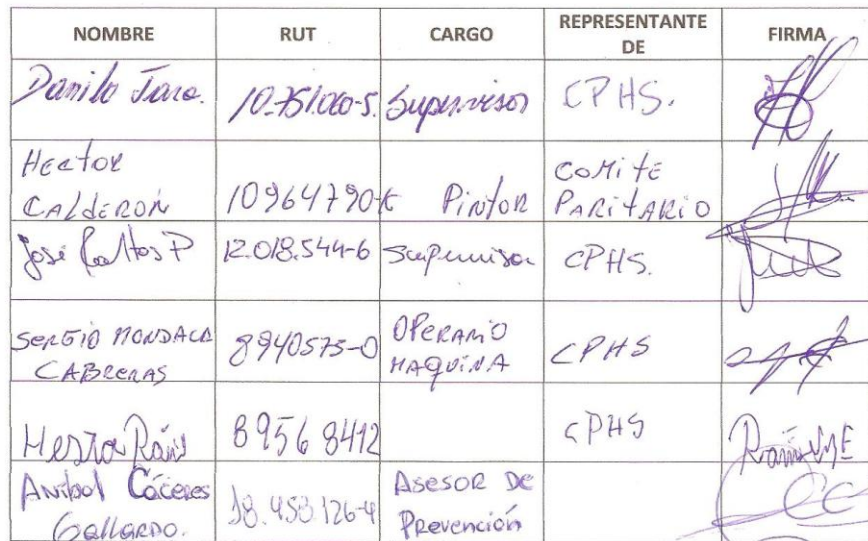 NOMBRE RUT CARGO REPRESENTANTE DE FIRMA
Danilo Jara. 10.751.060-5. Supervisor CPHS.
Hector CALDERÓN 10964790-K Pintor COMITE PARITARIO
José P 12.018.544-6 Supervisor CPHS.
SERGIO MONDACA CABRERAS 8940575-0 OPERARIO MAQUINA CPHS
89568412 CPHS
Anibal Cáceres Gallardo. 18.458.126-4 ASESOR DE Prevención